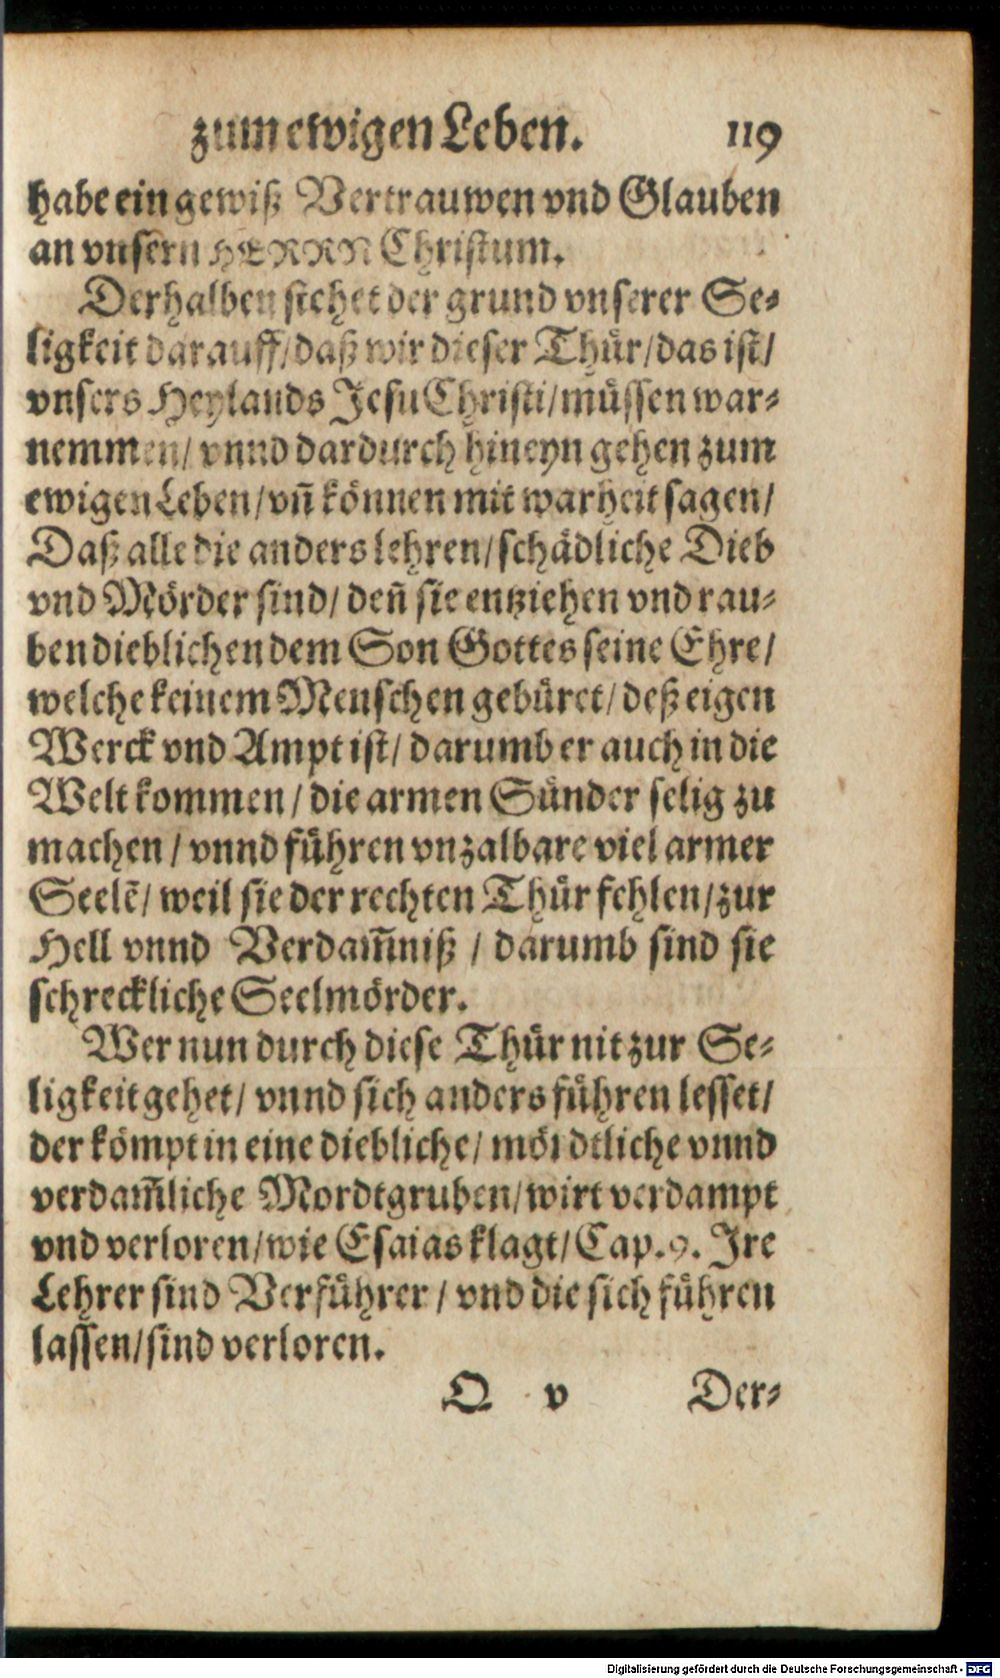 zum ewigen Leben. 119
habe ein gewiß Vertrauwen vnd Glauben
an vnsern HERRN Christum.
Derhalben stehet der grund vnserer Se-
ligkeit darauff/ daß wir dieser Thür/ das ist/
vnsers Heylands Jesu Christi/ müssen war-
nemmen/ vnnd dardurch hineyn gehen zum
ewigen Leben/ vñ können mit warheit sagen/
Daß alle die anders lehren/ schädliche Dieb
vnd Mörder sind/ deñ sie entziehen vnd rau-
ben dieblichen dem Son Gottes seine Ehre/
welche keinem Menschen gebüret/ deß eigen
Werck vnd Ampt ist/ darumb er auch in die
Welt kommen/ die armen Sünder selig zu
machen/ vnnd führen vnzalbare viel armer
Seelẽ/ weil sie der rechten Thür fehlen/ zur
Hell vnnd Verdam̃niß/ darumb sind sie
schreckliche Seelmörder.
Wer nun durch diese Thür nit zur Se-
ligkeit gehet/ vnnd sich anders führen lesset/
der kömpt in eine diebliche/ mördtliche vnnd
verdam̃liche Mordtgruben/ wirt verdampt
vnd verloren/ wie Esaias klagt/ Cap. 9. Jre
Lehrer sind Verführer/ vnd die sich führen
lassen/ sind verloren.
Q v Der-
Digitalisierung gefördert durch die Deutsche Forschungsgemeinschaft - DFG